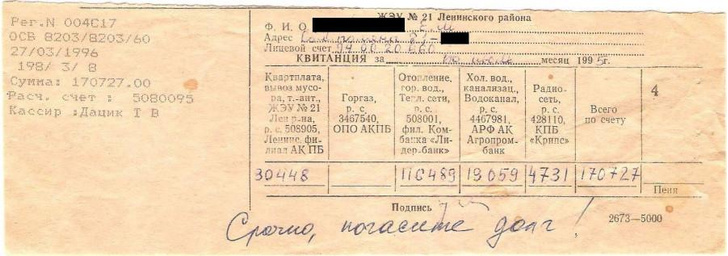 Рег.N 004617
ОСВ 8203/8203/60
27/03/1996
198/ 3/ 8
Сумма: 170727.00
Расч. счет : 5080095
Кассир :Дацик Т В
ЖЭУ № 21 Ленинского района
Ф. И. О
Адрес
Лицевой счет
КВИТАНЦИЯ за месяц 1995г.
Квартплата, вывоз мусора, т.-ант., ЖЭУ № 21 Лен р-на, р. с. 508905, Ленинс. филиал АК ПБ
Горгаз, р. с. 3467540, ОПО АКПБ
Отопление, гор. вод., Тепл. сети, р. с. 508001, фил. Комбанка «Лидер-банк»
Хол. вод., канализац., Водоканал, р. с. 4467981, АРФ АК Агропромбанк
Радиосеть, р. с. 428110, КПБ «Крипс»
Всего по счету
4
30448 116489 19059 4731 170727
Пеня
Подпись
2673—5000
Срочно, погасите долг!